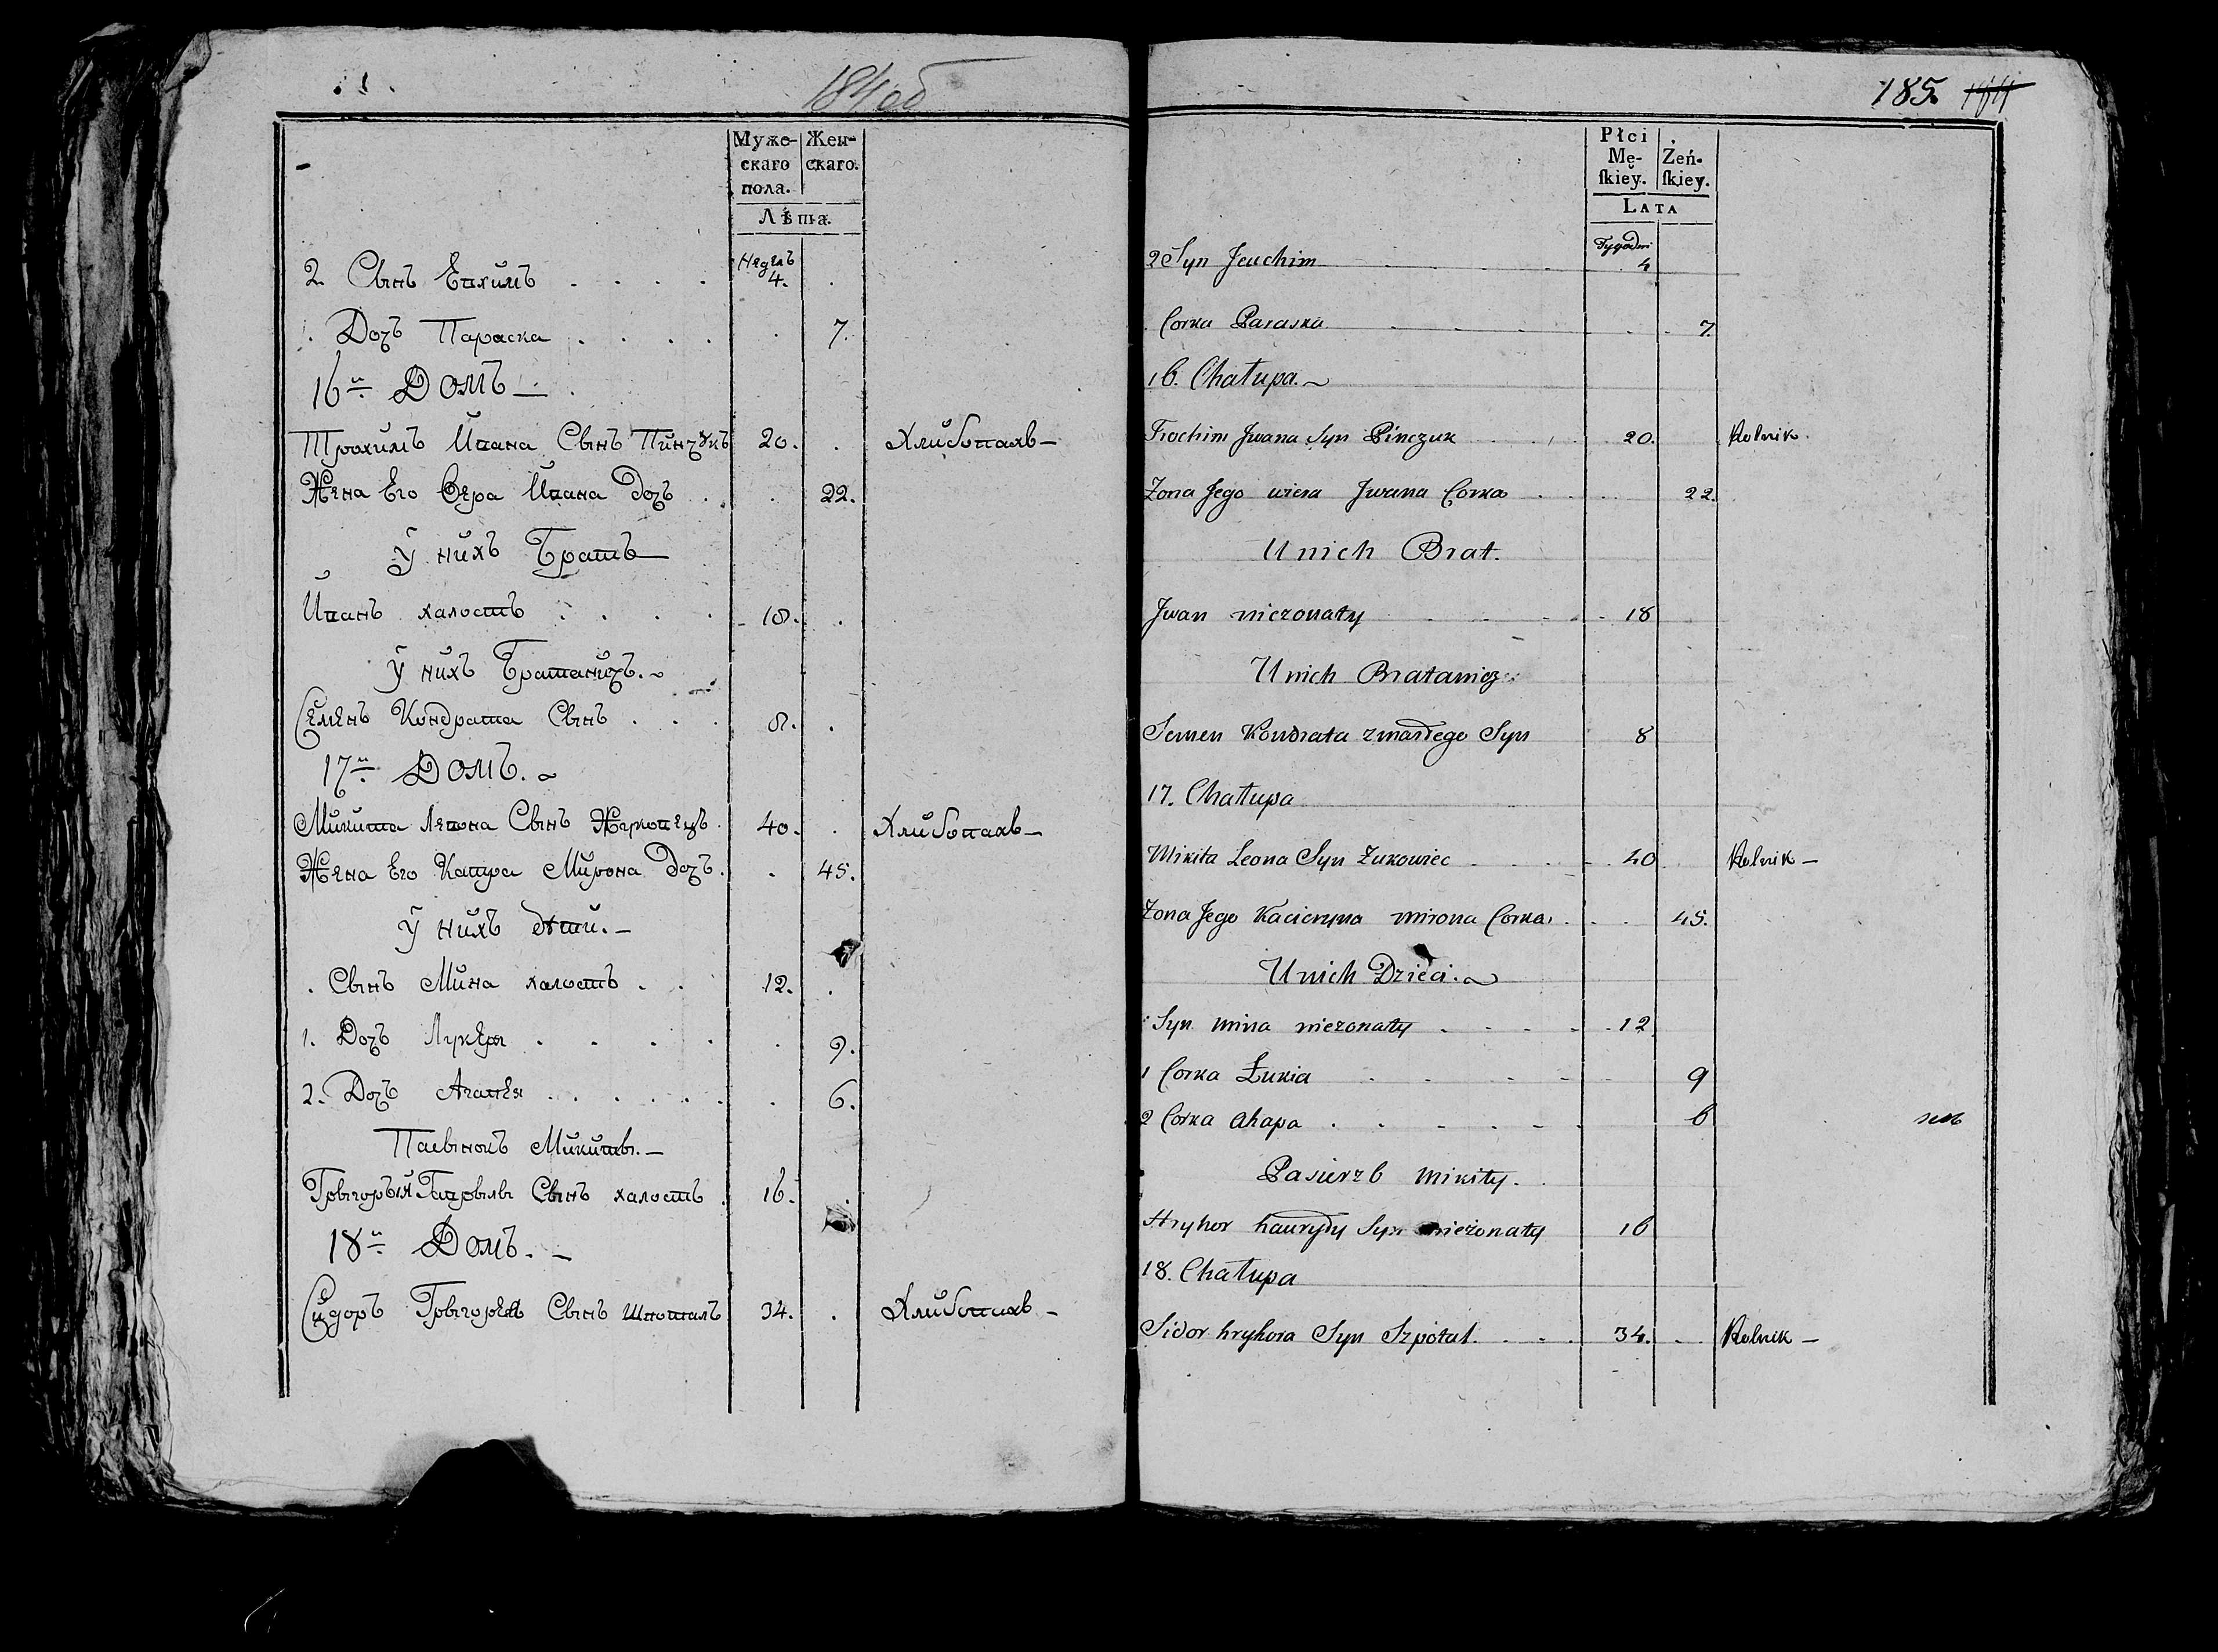 184 об
Муже-
скаго
пола.
Жен-
скаго.
Лѣта.
2. Сынъ Евхимъ . . . . Недель 4. .
. Дочъ Параска . . . . . 7.
16й Домъ
Трохимъ Ивана Сынъ Пинчукъ 20. . Хлибопахъ
Жена Его Вера Ивана Дочъ . . 22.
У нихъ Братъ
Иванъ халостъ . . . . 18. .
У нихъ Братаничъ.
Семенъ Кондрата Сынъ . . . 8. .
17й Домъ.
Микита Левона Сынъ 40. . Хлибопахъ
Жена Его Катра Мирона Дочъ. . 45.
У нихъ дѣти.
. Сынъ Мина халостъ . . 12. .
1. Дочъ Лукеря . . . . . 9.
2. Дочъ . . . . . . . 6.
Пасынокъ Микиты.
Гаврылы Сынъ халостъ . 16. .
18й Домъ.
Сидоръ Сынъ Шпоталъ 34. . Хлибопахъ
185. 184
Płci
Mę-
ſkiey.
Żeń-
ſkiey.
LATA
2 Syn Jeuchim Tygodni 4
. Corka Paraska . . . . . 7.
16. Chałupa.
Trochim Jwana Syn Pinczuk 20. Rolnik.
Zona Jego wiera Jwana Corka 22.
U nich Brat.
Jwan niezonaty 18
U nich Bratanicz
Semen Kondrata zmarłego Syn 8
17. Chałupa
Mikita Leona Syn Zukowiec 40 Rolnik
Zona Jego Kacieryna mirona Corka 45.
U nich Dzieci.
Syn mina niezonaty 12
1 Corka Łukia 9
2 Corka Ahapa 6
Pasierzb mikity.
Hryhor hawryły Syn niezonaty 16
18. Chałupa
Sidor hryhora Syn Szpotal. 34. Rolnik